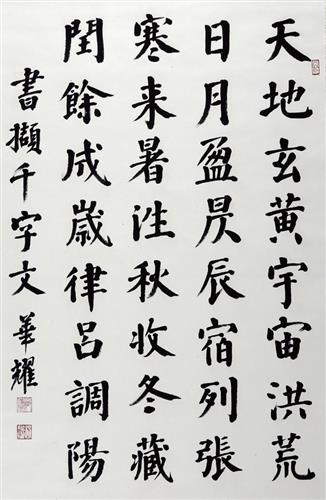 天地玄黃宇宙洪荒
日月盈昃辰宿列張
寒来暑往秋收冬藏
閏餘成歲律呂調陽
書擷千字文 華耀